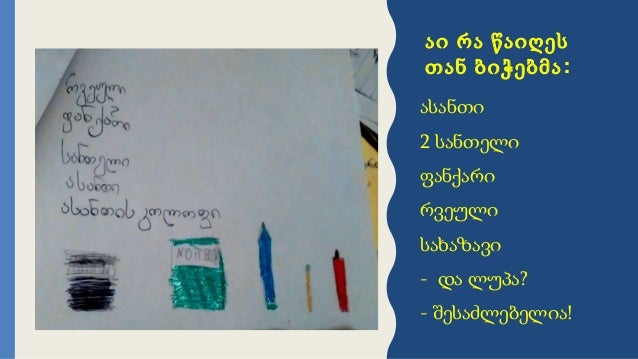 რვეული
ფანქარი
სანთელი
ასანთი
ასანთის კოლოფი
NOTEBOOK
აი რა წაიღეს
თან ბიჭებმა:
ასანთი
2 სანთელი
ფანქარი
რვეული
სახაზავი
- და ლუპა?
- შესაძლებელია!